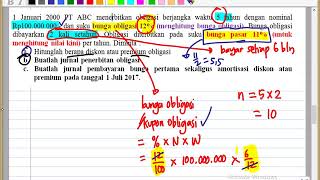 1 Januari 2000 PT ABC menerbitkan obligasi berjangka waktu 5 tahun dengan nominal
Rp100.000.000 dan suku bunga 12% (menghitung bunga obligasi). Bunga obligasi
dibayarkan 2 kali setahun. Obligasi diterbitkan pada suku bunga pasar 11% (untuk
menghitung nilai kini) per tahun. Diminta
a. Hitunglah berapa diskon atau premium obligasi
b. Buatlah jurnal penerbitan obligasi
c. Buatlah jurnal pembayaran bunga pertama sekaligus amortisasi diskon atau
premium pada tanggal 1 Juli 2017.
bayar setiap 6 bln
11/2 = 5.5
bunga obligasi
/kupon obligasi
= % x N x W
= 12/100 x 100.000.000 x 6/12
n = 5 x 2
= 10